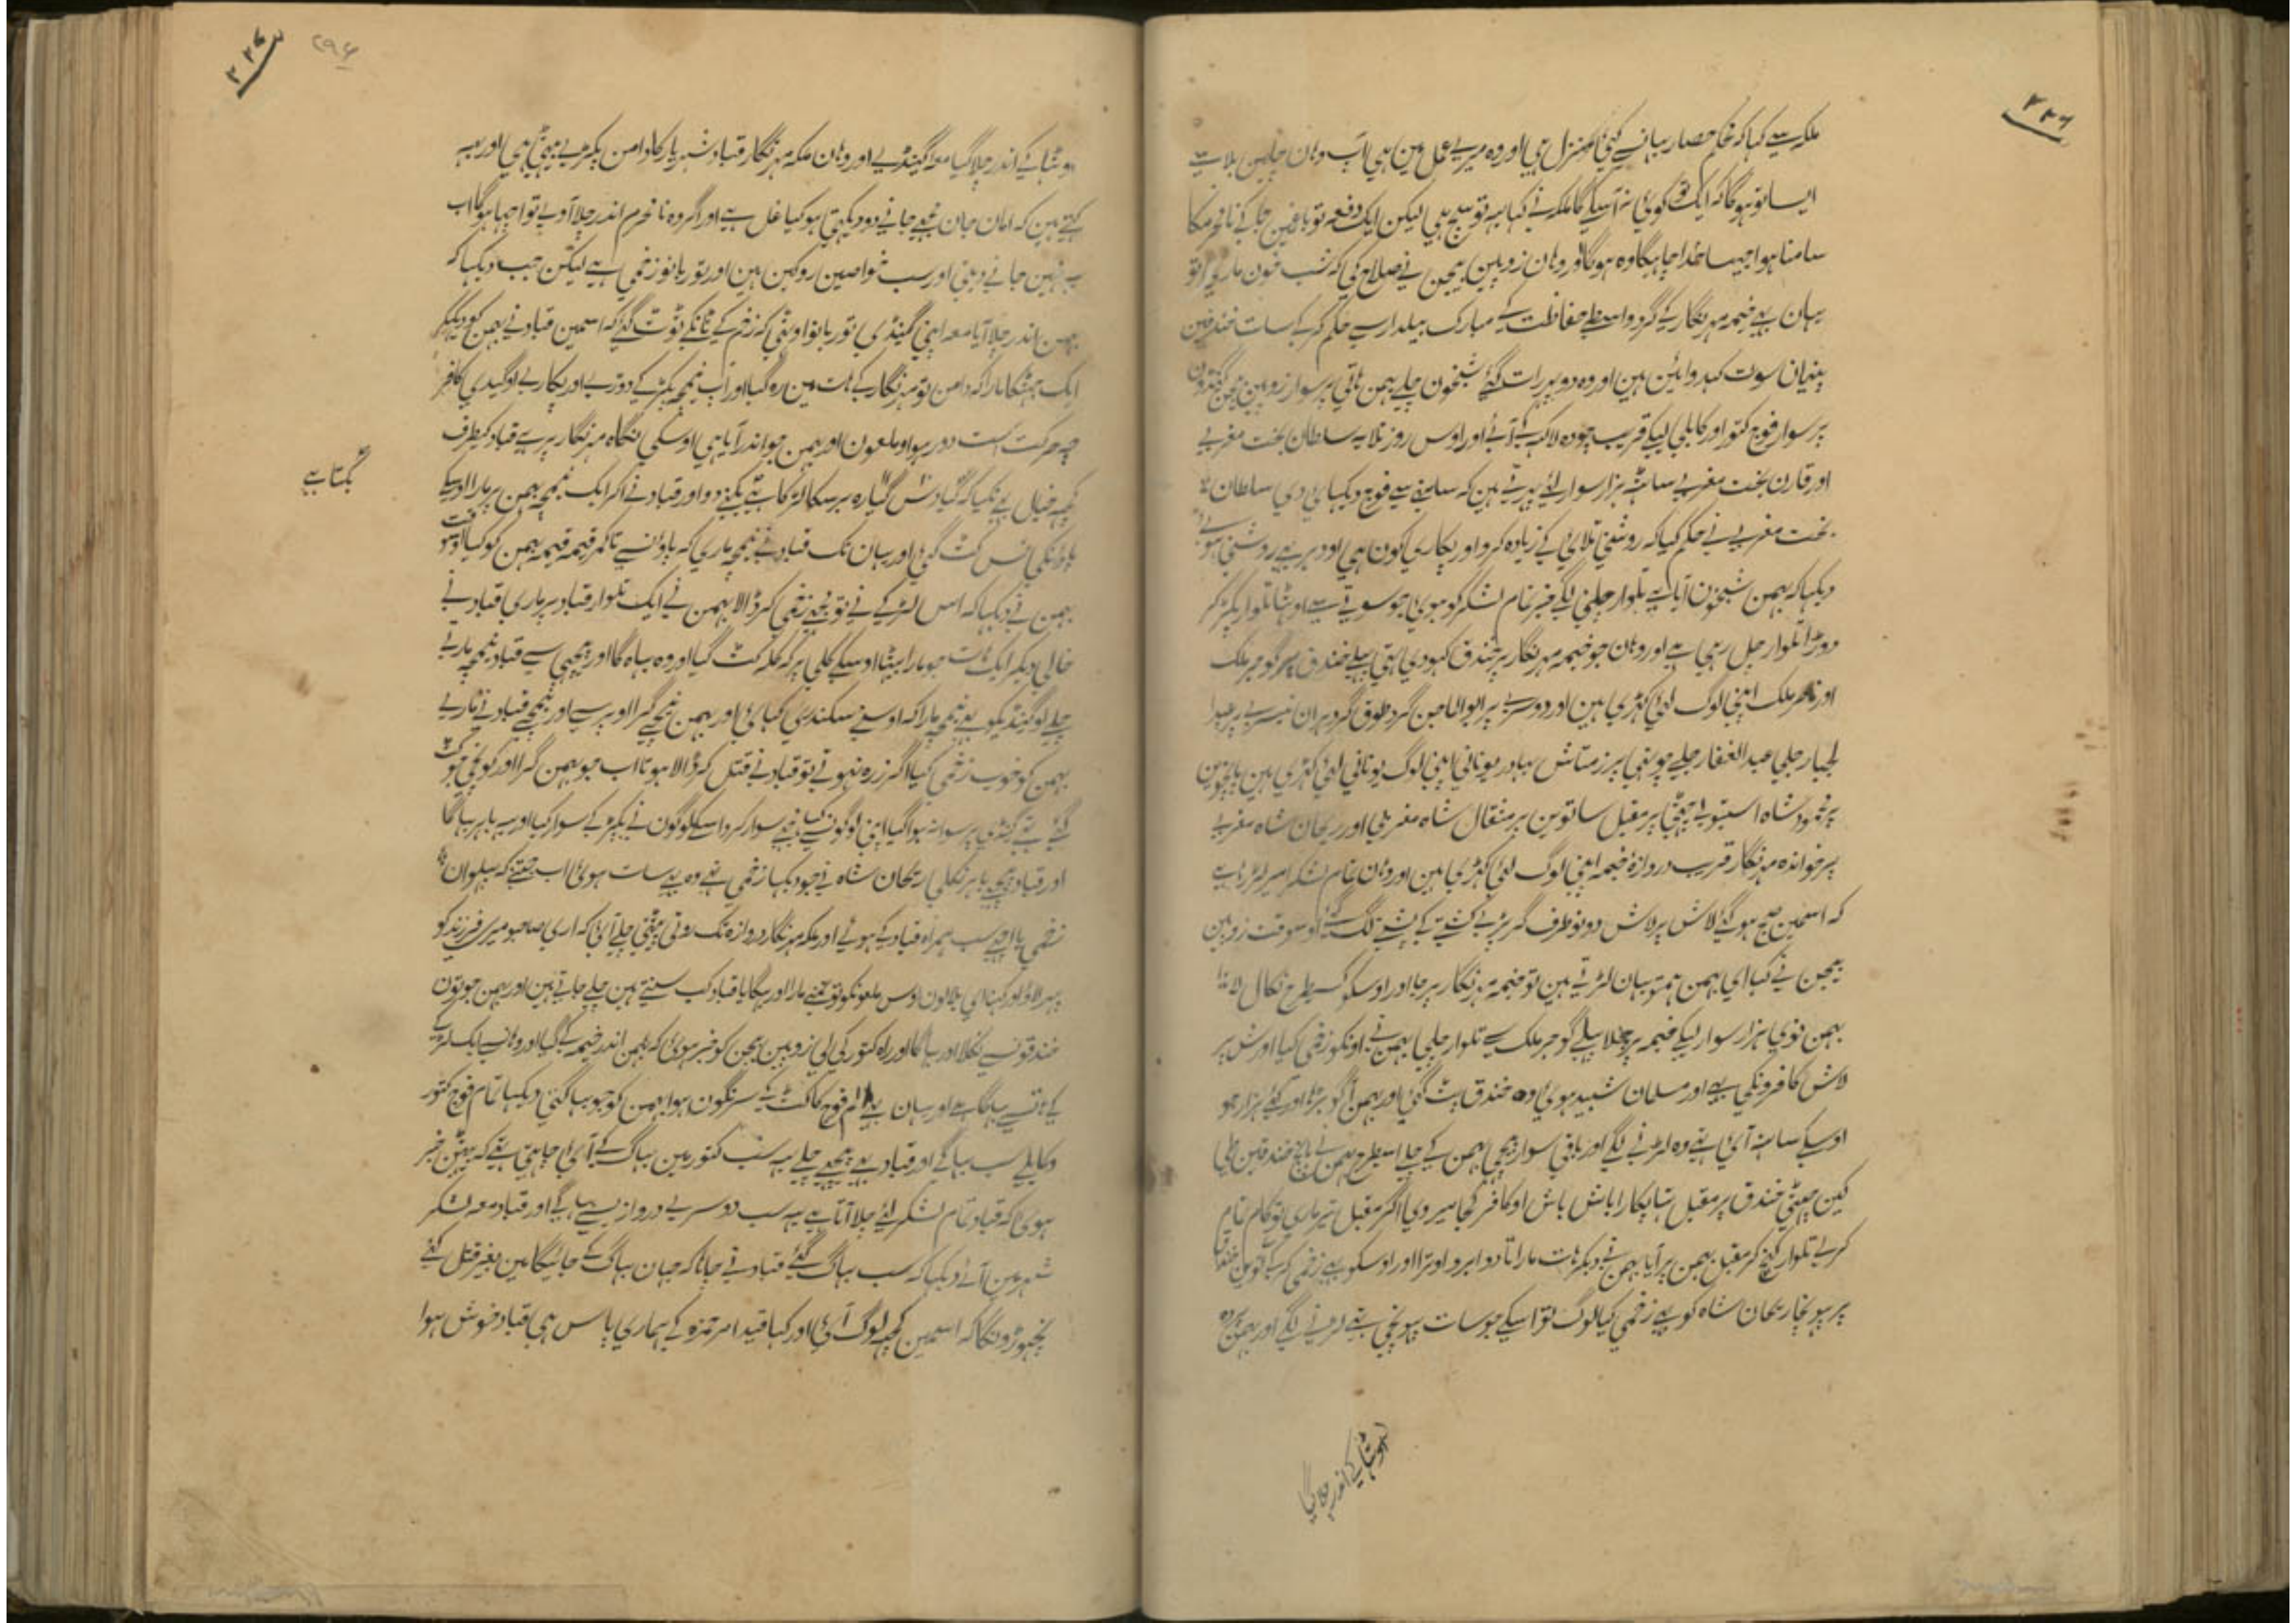 ۳۲۶
ملکہ سے کہا کہ حکم حصار یہانسے کئی منزل ہی اور وہ میرے عمل مین ہی آپ وہان چلین بلا سے
ایسا تو ہوگا کہ ایک کوئی نہ آسکے گا ملکہ نے کہا یہ تو سچ ہی لیکن ایک دفعہ تو نامحرمکا
سامنا ہوا جیسا خدا چاہیگا وہ ہوگا اور وہان زوپین بیجن نے صلاح کی کہ شب خون ماریی تو
یہان بہے خیمہ مہر نگار کے گرد واسطے حفاظت کے مبارک بیلدار سے حکم کرکے سات خندقین
سوت کہدوائین ہین اور وہ دو پہر رات گئے شبخون چلے بہمن ہاتی پر سوار زوپین بیجن
پر سوار فوج کتور اور کابلی لیکے قریب چودہ لاکہہ کے آئے اور اوس روز تلایہ سلطان بخت مغربے
اور قارن بخت مغربے ساٹہہ ہزار سوار لئے پہرتے ہین کہ سامنے سے فوج دیکہائی دی سلطان
بخت مغربے نے حکم کیا کہ روشنی تلائی کے زیادہ کرو اور پکاری کون ہی اودہر سے روشنی ہوئے
دیکہا کہ بہمن شبخون آیا ہے تلوار چلنی لگے خبر تمام لشکر کو ہوئی جو سوتے سے اوٹہا تلوار پکڑ کر
دوڑا تلوار چل رہی ہے اور وہان جو خیمہ مہر نگار پر خندق کہودی تہی پہلے خندق پر گوجر ملک
اور ملک اپنی لوگ لئی کہڑی ہین اور دوسرے پر ابوالمامن گرد طوق گرد بہران تیسرے پر عبدا
لجبار حلبی عبدالغفار حلبے چوتہی پر زمتاش بہادر یونانی اپنی لوگ یونانی لئی کہڑی ہین پانچوین
پر شاہ چہٹی پر مقبل ساتوین پر منقال شاہ مغربی اور ریحان شاہ مغربے
پسر خواندہ مہر نگار قریب دروازہ خیمہ اپنی لوگ لئی کہڑی ہین اور وہان تمام لشکر امیر لڑتا ہے
کہ اسمین صبح ہو گئے لاش پر لاش دونو طرف گر پڑے کشتے کے پشتے لگ گئے اوسوقت زوپین
بیجن نے کہا ای بہمن ہمتو یہان لڑتے ہین تو خیمہ مہر نگار پر جا اور اوسکو کسیطرح نکال لانا
بہمن نوی ہزار سوار لیکے خیمہ پر چلا پہلے گوجر ملک سے تلوار چلی بہمن نے اونکو زخمی کیا اور لاش پر
لاش کافرونکی ہے اور مسلمان شہید ہوئی وہ خندق پٹ گئی اور بہمن آگو بڑہا اور کئے ہزار جو
اوسکے سامنے آئی تہے وہ لڑنے لگے اور باقی سوار پیچہی بہمن کے چلے اسیطرح بہمن نے پانچ خندقین طی
کین چہٹی خندق پر مقبل تہا پکارا باش باش او کافر کجا میروی اگر مقبل تیر ماری تو کام تمام
کرے تلوار کہنچ کر مقبل بہمن پر آیا بہمن نے دیکر ہات مارا تا دو ابرو اوترا اور اوسکو بہے زخمی کرکے
پر پہونچا ریحان شاہ کو بہے زخمی کیا لوگ تو اسکے جو سات پہونچی تہے لڑنے لگے اور بہمن پردہ
اوٹہا کے اندر چلا گیا
۳۲۷
۲۹۶
اوٹہا کے اندر چلا گیا معہ گینڈے اور وہان ملکہ مہر نگار قباد شہریار کا دامن پکڑے بیٹہی ہی اور یہہ
کہتے ہین کہ امان جان مجہے جانے دو دیکہتی ہو کیا غل ہے اور اگر وہ نامحرم اندر چلا آوے تو اچہا ہوگا اب
یہ نہین جانے دیتی اور سب خواصین روکہین ہین اور تور بانو زخمی ہے لیکن جب دیکہا کہ
بہمن اندر چلا آیا معہ اپنی گینڈی تور بانو اوٹہی کہ زخم کے ٹانکے ٹوٹ گئے کہ اسمین قباد نے بہمن کو دیکہکر
ایک جہٹکا مارا کہ دامن تو مہر نگار کے ہات مین رہ گیا اور آپ نیمچہ پکڑ کے دوڑے اور پکارے او گیدی کافر
چہ حرکت است دور ہو او ملعون اور بہمن جو اندر آیا ہی اوسکی نگاہ مہر نگار پر ہے قباد کیطرف
کچہہ خیال بہے نکیا کہ دس گیارہ برسکا لڑکا ہے دو اور قباد نے آکر ایک نیمچہ بہمن پر مارا اوسکے
گتا ہے
پاؤنکی نس کٹ گئی اور یہان تک قباد نے نیمچہ ماری کہ پاؤن سے تا کمر قیمہ قیمہ بہمن کو کیا اوسوقت
بہمن نے دیکہا کہ اس لڑکے نے تو مجہے زخمی کر ڈالا بہمن نے ایک تلوار قباد پر ماری قباد نے
خالی دیکر ایک ہات جو مارا بیٹہا اوسکے کلی پر کہ کلہ کٹ گیا اور وہ بہاگا اور پیچہی سے قباد نیمچہ مارے
چلے او گینڈیکو بہے نیمچہ مارا کہ اوسنے سکندری کہائی اور بہمن نیچے گرا اوپر سے اور نیمچے قباد نے مارے
بہمن کو خوب زخمی کیا اگر زرہ نہوتے تو قباد نے قتل کر ڈالا ہوتا اب جو بہمن گرا اور کونچی جو کٹ
گئے تہے گینڈی پر سوار نہوا گیا اپنی لوگونسے کہا مجہے سوار کردو اسکے لوگون نے پکڑ کے سوار کیا اور یہ باہر بہاگا
اور قباد پیچہے باہر نکلی ریحان شاہ نے جو دیکہا زخمی تہے وہ بہے سات ہوئی اب جتنے کہ پہلوان
زخمی یا اچہے سب ہمراہ قباد کے ہوئے اور ملکہ مہر نگار دروازہ تک روتی پیٹتی چلے آئی کہ اری صاحبو میری فرزند کو
پہیر لاؤ اور کہنا ای بلا لون اوس ملعونکو تو تمنے مارا اور بہگایا قباد کب سنتے ہین چلے جاتے ہین اور بہمن جو تون
خندقونسے نکلا اور بہاگا اور راہ کتور کی لی زوپین بیجن کو خبر ہوئی کہ بہمن اندر خیمہ کے گیا اور وہانسے ایک لڑکے
کے ہاتسے بہاگا ہے اور یہان بہے علم فوج کا کٹ کے سرنگون ہوا بہمن کو جو بہاگتی دیکہا تمام فوج کتور
و کابلے سب بہاگے اور قباد بہے پیچہے چلے یہ سب کتور مین بہاگ کے آئی چاہتی تہے کہ بہین خبر
ہوئی کہ قباد تمام لشکر لئے چلا آتا ہے یہ سب دوسرے دروازیسے بہاگے اور قباد معہ لشکر
شہر مین آئے دیکہا کہ سب بہاگ گئے قباد نے جانا کہ جہان بہاگ کے جائیگا مین بغیر قتل کئے
نچہوڑونگا کہ اسمین کچہہ لوگ آئی اور کہا قید امیر حمزہ کے ہماری پاس ہی قباد خوش ہوا